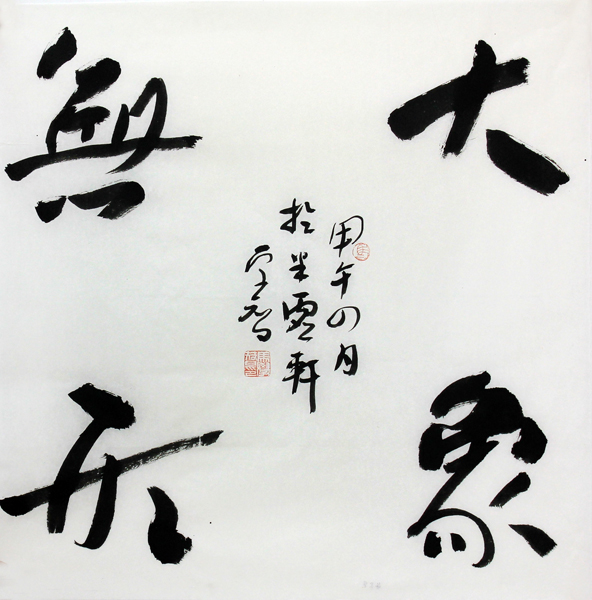 大象
無形
甲午四月
於半虛軒